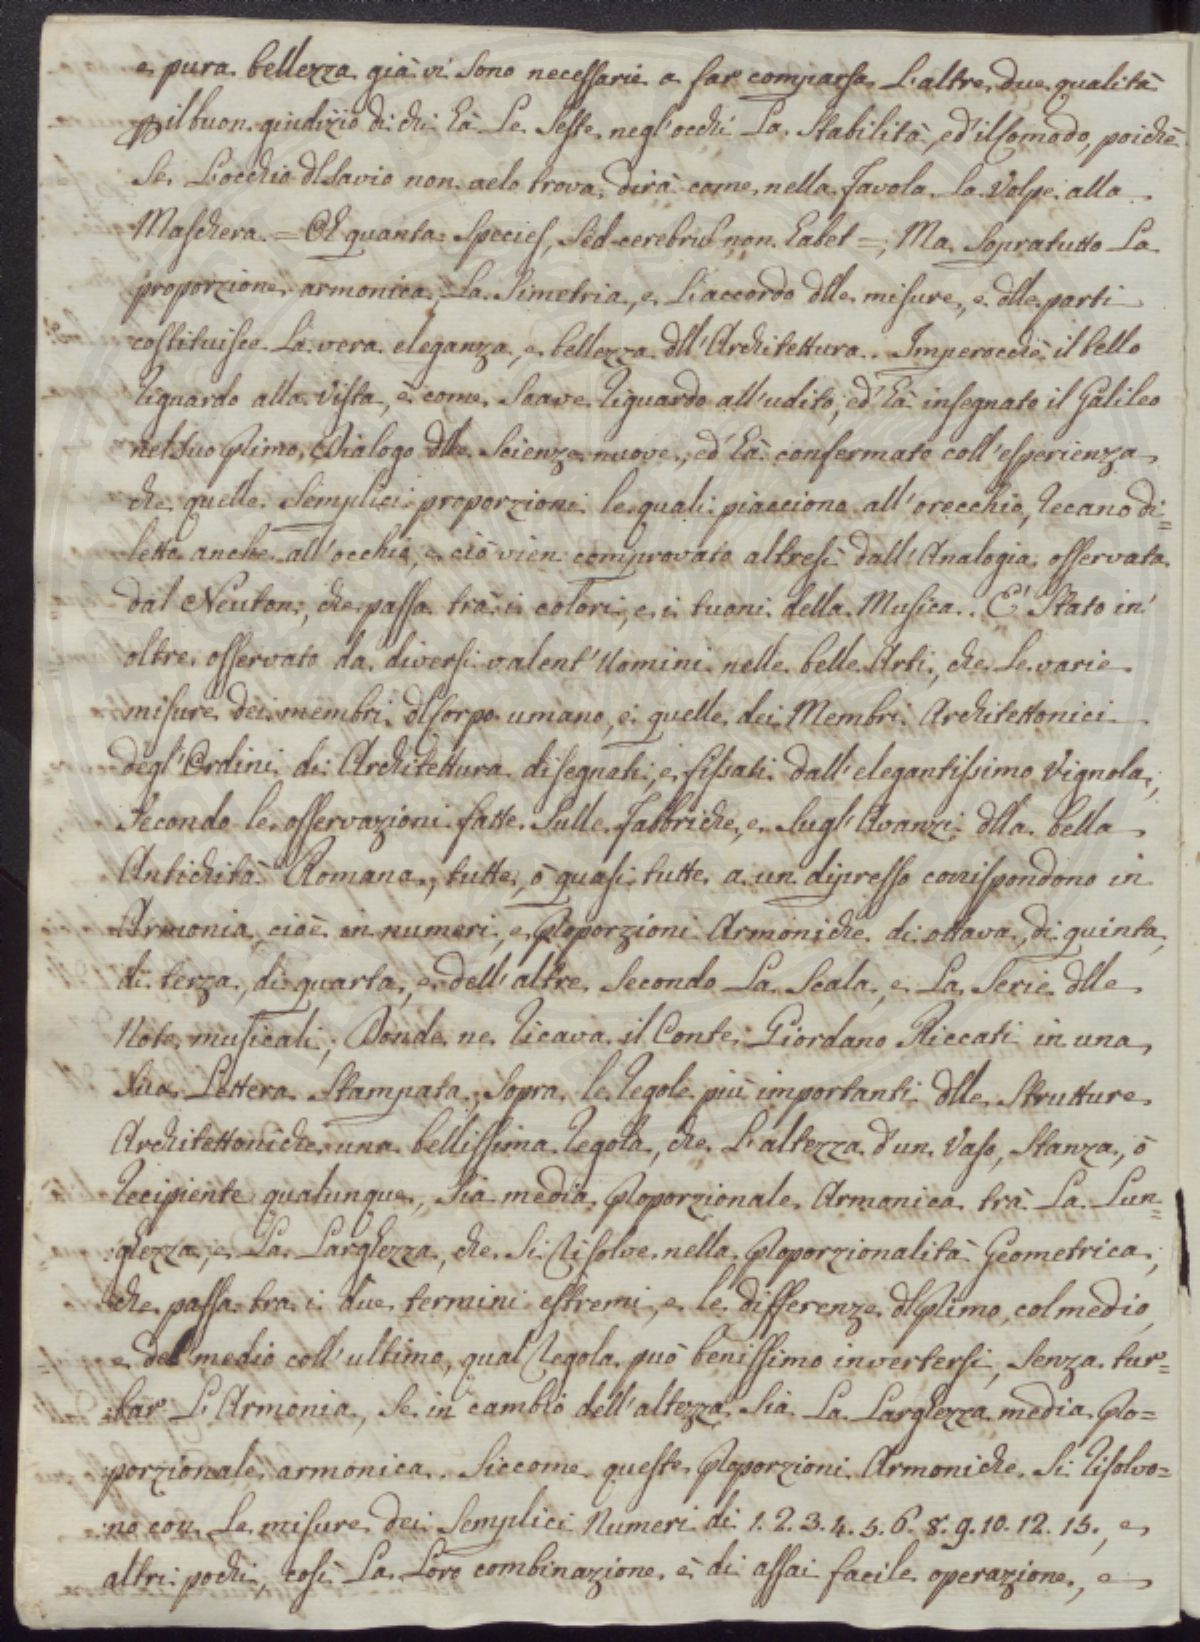 e pura bellezza già vi sono necessarie a far comparsa l'altre due qualità
p il buon giudizio di chi hà le seste negl'occhi la stabilità, ed' il comodo, poichè
se l'occhio dl savio non ve lo trova dirà come nella favola la Volpe alla
Maschera = Oh quanta species, sed cerebrum non habet =; Ma sopratutto la
proporzione armonica, la simetria, e l'accordo dlle misure, e dlle parti
costituisce la vera eleganza, e bellezza dll'Architettura. Imperocchè il bello
riguardo alla vista, è come soave riguardo all'udito, ed' hà insegnato il Galileo
nel suo primo Dialogo dlle Scienze nuove, ed' hà confermato coll'esperienza
che quelle semplici proporzioni le quali piacciono all'orecchio, recano di=
letto anche all'occhio, e ciò vien comprovato altresì dall'Analogia osservata
dal Neuton, che passa trà i colori, e i tuoni della Musica. E' stato in'
oltre osservato da diversi valent'Uomini nelle belle Arti, che le varie
misure dei membri dl Corpo umano, e quelle dei Membri Architettonici
degl'Ordini di Architettura disegnati, e fissati dall'elegantissimo Vignola,
secondo le osservazioni fatte sulle Fabbriche, e sugl'Avanzi dlla bella
Antichità Romana, tutte, ò quasi tutte a un dipresso corrispondono in
Armonia, cioè in numeri, e Proporzioni Armoniche di ottava, di quinta,
di terza, di quarta, e dell'altre secondo la Scala, e la Serie dlle
Note musicali; Donde ne ricava il Conte Giordano Riccati in una
sua Lettera stampata, sopra le regole più importanti dlle strutture
Architettoniche una bellissima regola, che l'altezza d'un Vaso, Stanza, ò
recipiente qualunque, sia media Proporzionale Armonica trà la Lun=
ghezza, e la Larghezza, che si risolve nella Proporzionalità Geometrica,
che passa tra i due termini estremi, e le differenze dl primo, col medio,
e del medio coll'ultimo, qual regola può benissimo invertersi, senza tur=
bar l'Armonia, se in cambio dell'altezza sia la Larghezza media Pro=
porzionale armonica. Siccome queste Proporzioni Armoniche si risolvo=
no con le misure dei semplici Numeri di 1. 2. 3. 4. 5. 6. 8. 9. 10. 12. 15., e
altri pochi, così la loro combinazione è di assai facile operazione, e